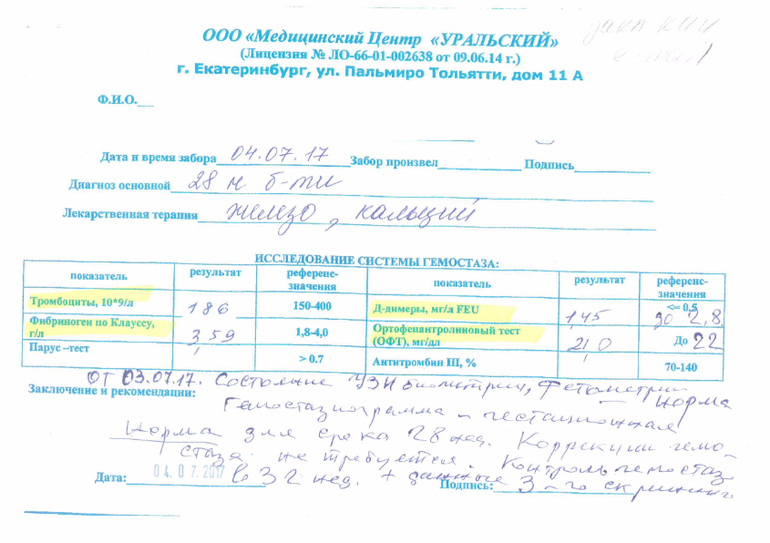 ООО «Медицинский Центр «УРАЛЬСКИЙ»
(Лицензия № ЛО-66-01-002638 от 09.06.14 г.)
г. Екатеринбург, ул. Пальмиро Тольятти, дом 11 А
Ф.И.О.
Дата и время забора 04.07.17 Забор произвел Подпись
Диагноз основной 28 н б-ти
Лекарственная терапия железо, кальций
ИССЛЕДОВАНИЕ СИСТЕМЫ ГЕМОСТАЗА:
показатель результат референс-значения показатель результат референс-значения
Тромбоциты, 10*9/л 186 150-400 Д-димеры, мг/л FEU 1,45 <= 0,5 до 2,8
Фибриноген по Клауссу, г/л 3,59 1,8-4,0 Ортофенантролиновый тест (ОФТ), мг/дл 21,0 До 22
Парус –тест > 0.7 Антитромбин III, % 70-140
от 03.07.17. Состояние УЗИ биометрии, фетометрии – норма
Заключение и рекомендации:
Гемостазиограмма – гестационная
норма для срока 28 нед. Коррекции гемо-
стаза не требуется. Контроль гемостаз
в 32 нед. + данные 3-го скрининга
Дата: 04.07.2017 Подпись: